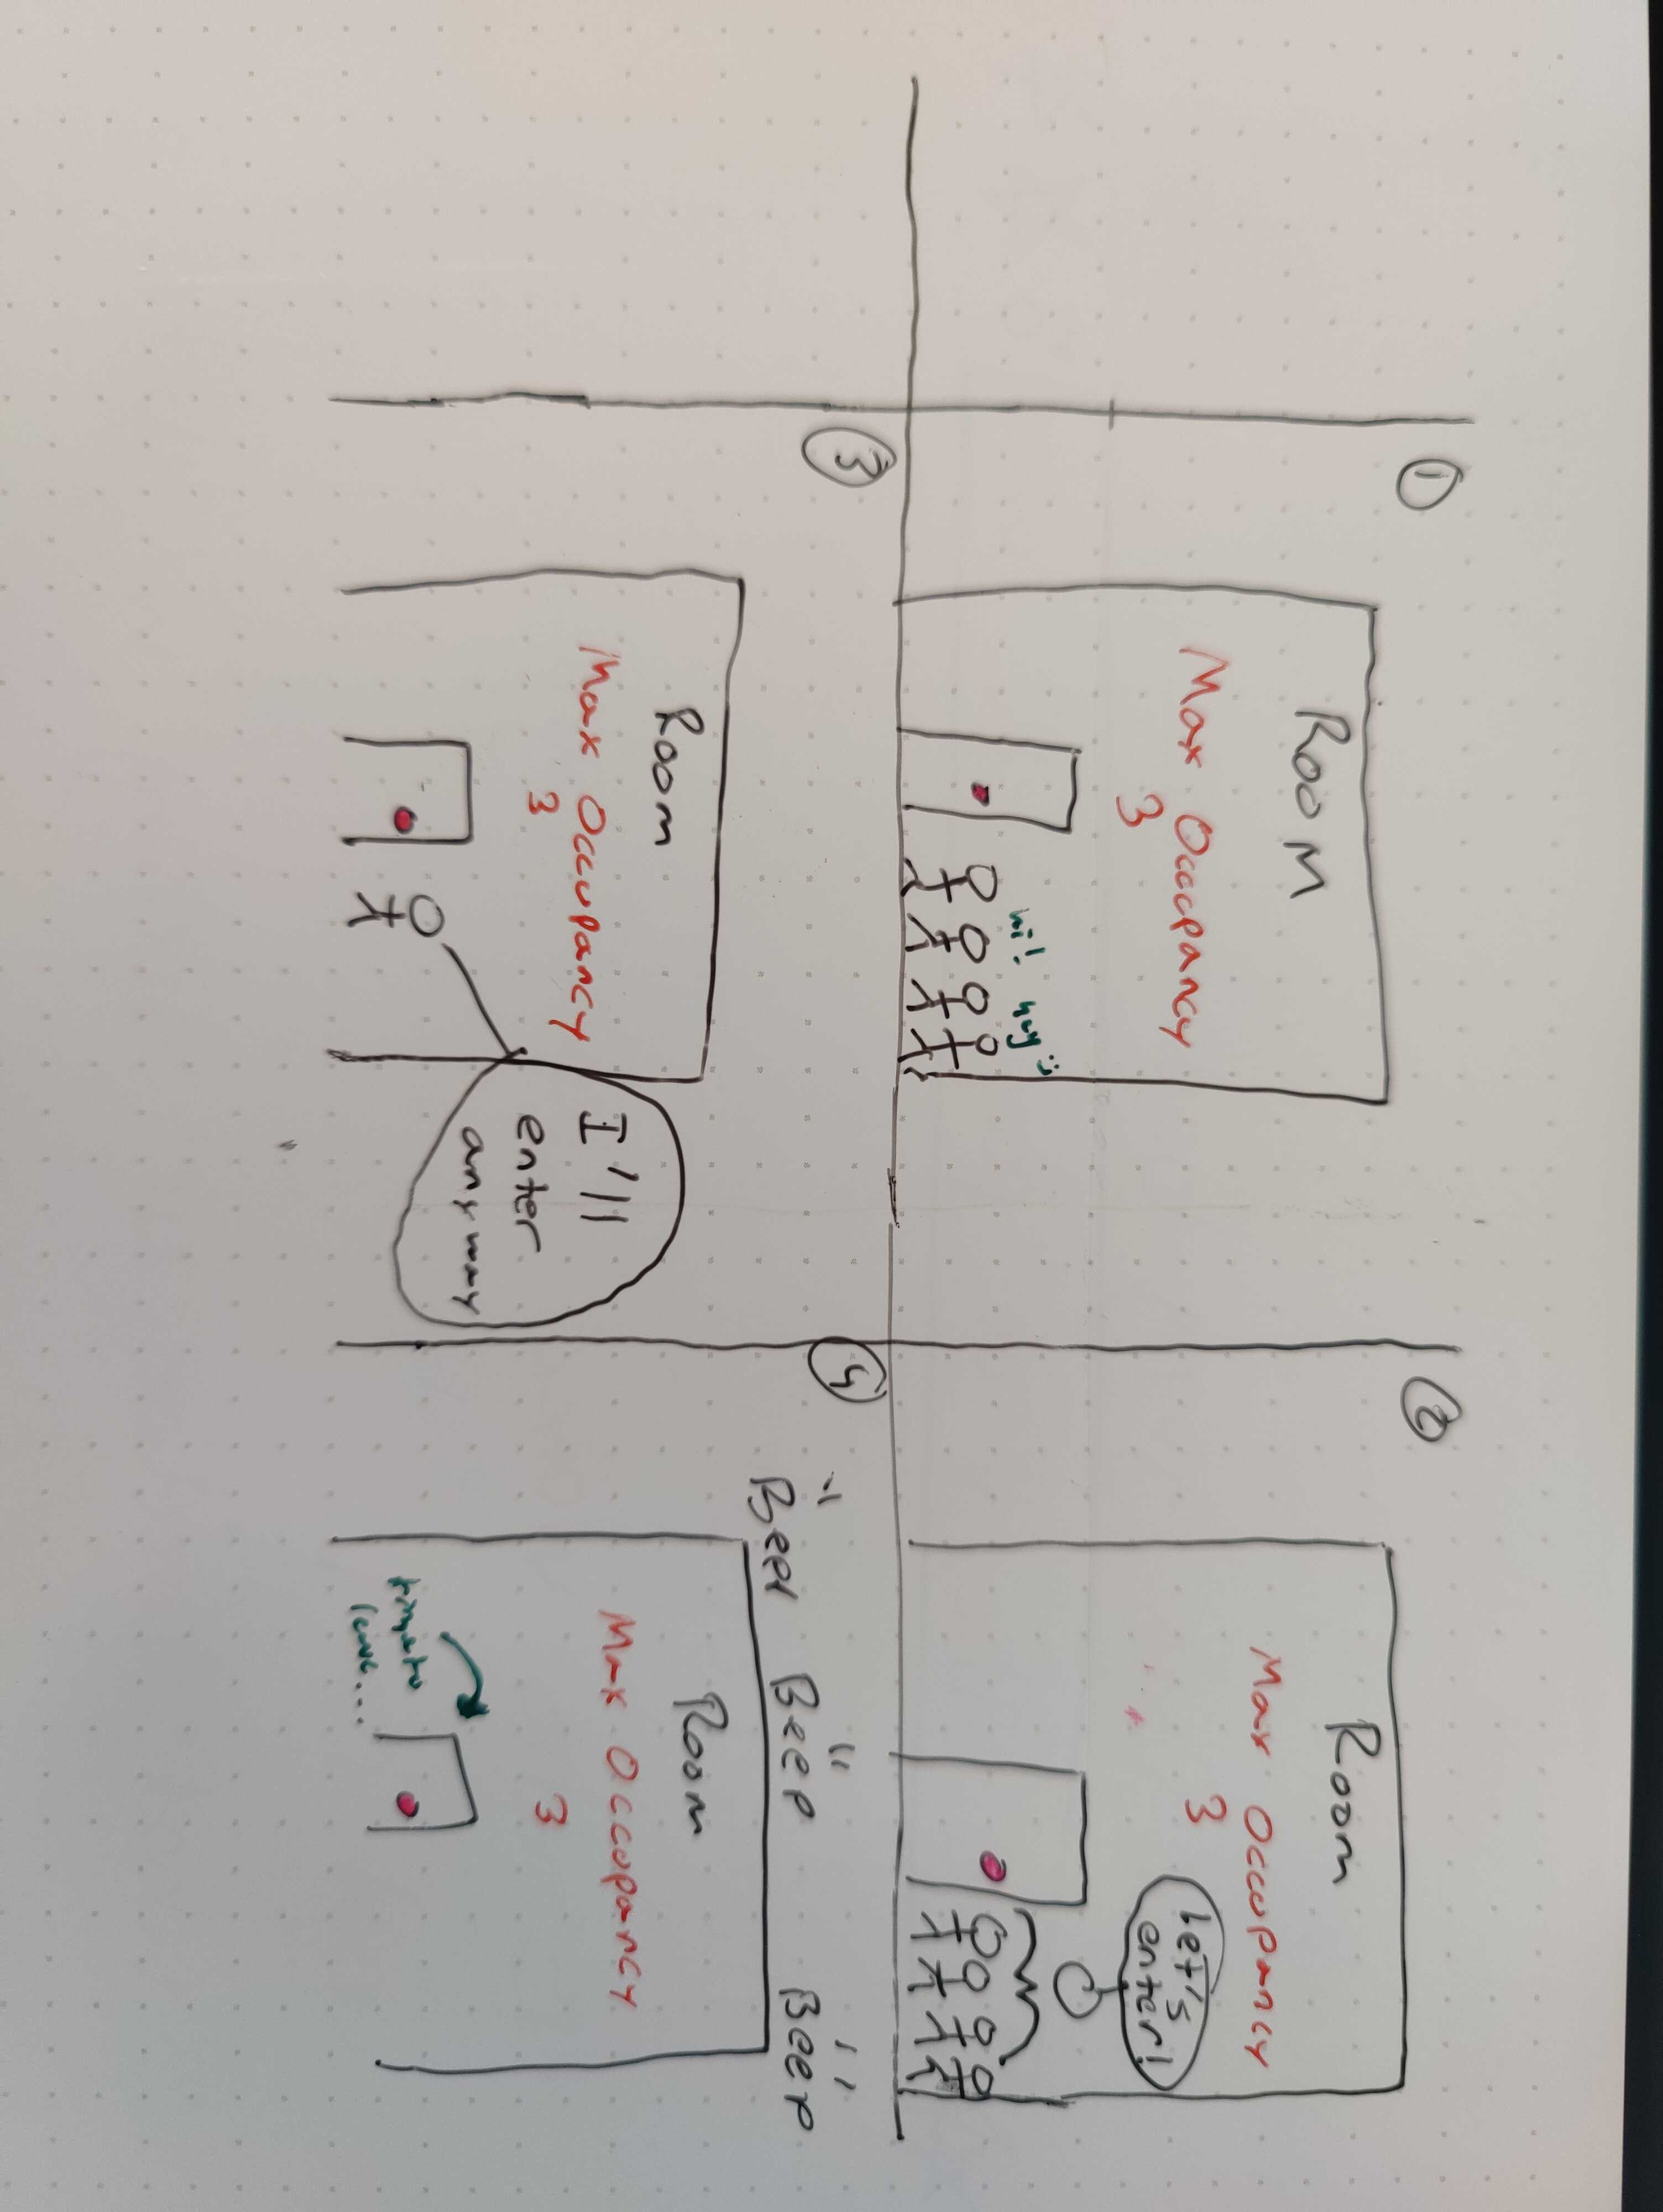 1
Room
Max Occpancy
3
hi! hey :)
2
Room
Max Occupancy
3
Let's
enter!
3
Room
Max Occupancy
3
I'll
enter
anyway
4
"Beep Beep" Beep
Room
Max Occupancy
3
leave...